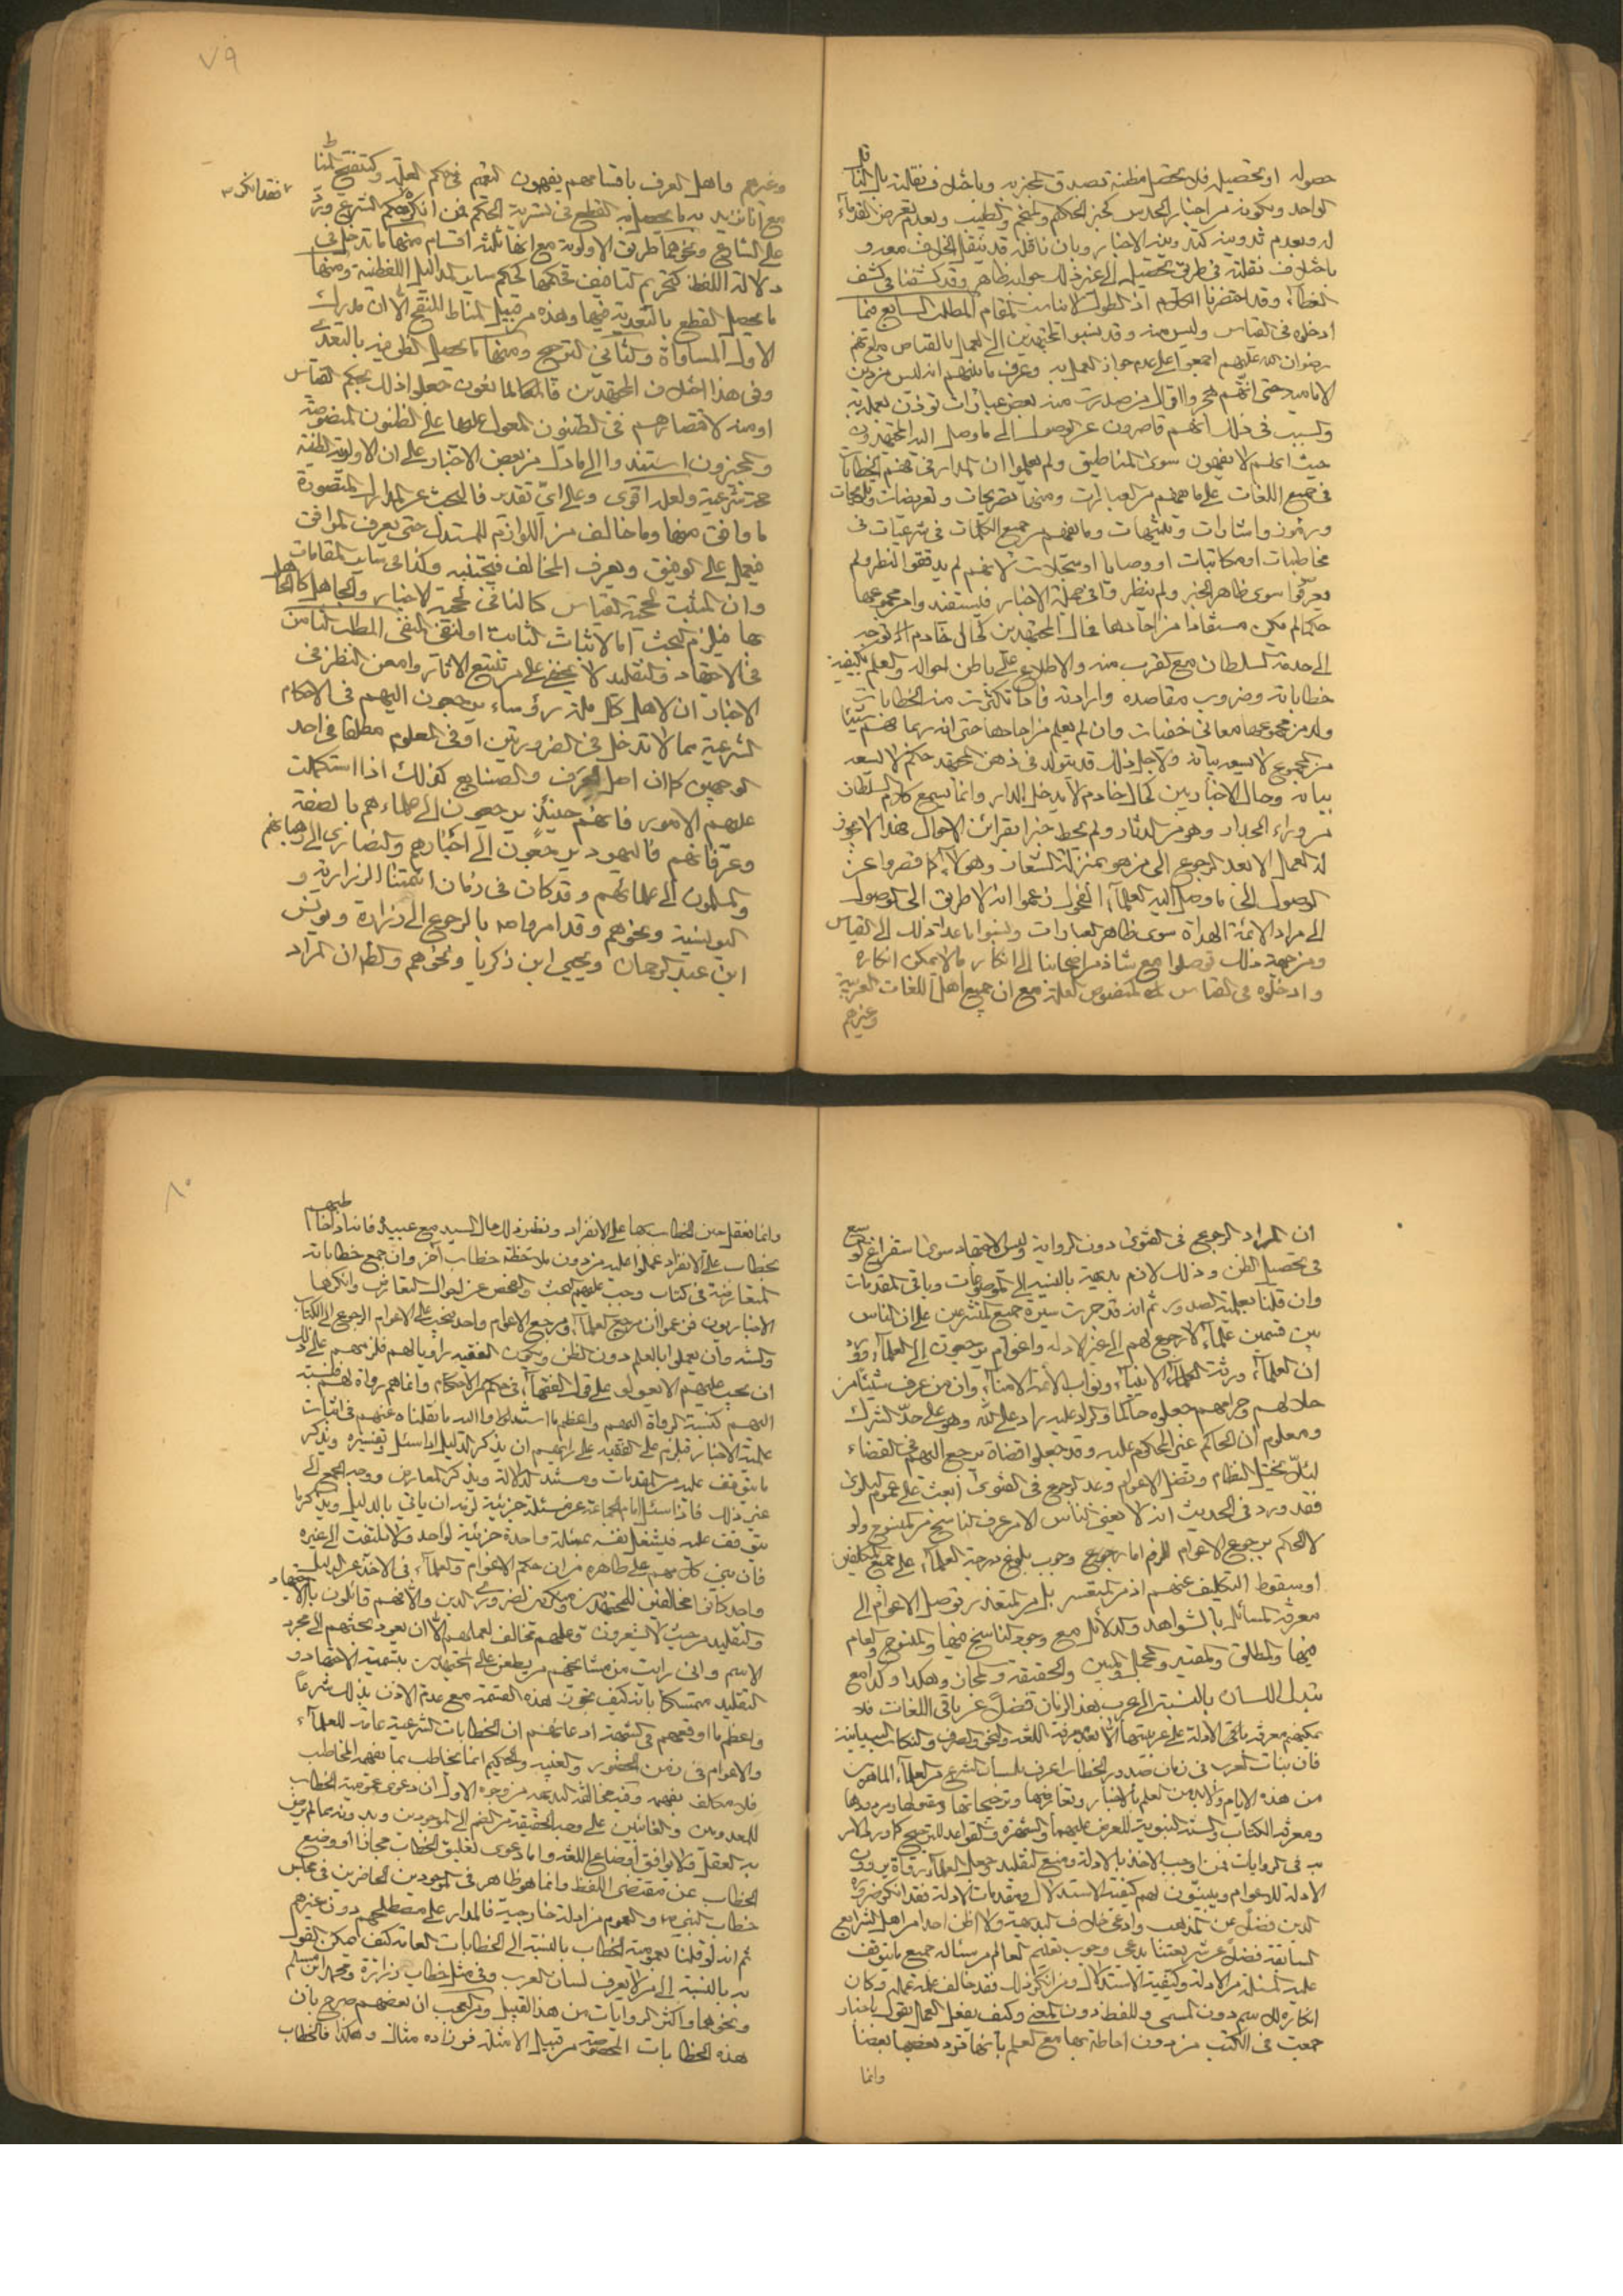 حصوله او تحصيله فلا تحصل مظنة تصدق المخبر به وباختلاف نقلته بل النا قل
الواحد وبكونه من اخبار الحدس كخبر الحكيم والمنجم والطبيب وبعدم تعرض القدماء
له وبعدم تدوينه كتدوين الاخبار وبان ناقله قد ينقل الخلاف معه و
باختلاف نقلته في طريق تحصيله الى غير ذلك جوابه ظاهر وقد كشفنا في كشف
الغطاء وقد اختصرنا الكلام اذ التطويل لا يناسب المقام المطلب السابع فيما
ادخلوه في القياس وليس منه وقد نسبوا المجتهدين الى العمل بالقياس مع انهم
رضوان الله عليهم اجمعوا على عدم جواز العمل به وعرف ما بينهم انه ليس من دين
الامامية حتى انهم هجروا اقوال من صدرت منه بعض عبارات توذن بعمله به
والسبب في ذلك انهم قاصرون عن الوصول الى ما وصل اليه المجتهدون
حيث انهم لا يفهمون سوى المناطيق ولم يعلموا ان المدار في فهم الخطابات
في جميع اللغات على ما يفهم من العبارات ومنها تصريحات وتعريضات وتلويحات
ورموز واشارات وتنبيهات وما يفهم من جميع الكلمات في شرعيات في
مخاطبات او مكاتبات او وصايا او سجلات لانهم لم يدققوا النظر ولم
يعرفوا سوى ظاهر الخبر ولم ينظروا في جملة الاخبار فيستفيدوا من مجموعها
حكما لم يكن مستفادا من احادها فحال المجتهدين كحال خادم له توجه
الى خدمة السلطان مع القرب منه والاطلاع على باطن احواله والعلم بكيفية
خطاباته وضروب مقاصده وارادته فاذا تكثرت منه الخطابات
ولد من مجموعها معاني خفيات وان لم يعلم من احادها حتى انه ربما فهم شيئا
من المجموع لا يسعه بيانه ولاجل ذلك قد يتولد في ذهن المجتهد حكم لا يسعه
بيانه وحال الاخباريين كحال خادم لا يدخل الدار وانما يسمع كلام السلطان
من وراء الجدار وهو من الدثار ولم يحط خبرا بقرائن الاحوال فهذا لا يجوز
له العمل الا بعد الرجوع الى من هو بمنزلة الشعار وهولاء لما قصروا عن
الوصول الى ما وصل اليه العلماء الفحول زعموا انه لا طريق الى الوصول
الى مراد الائمة الهداة سوى ظاهر العبارات ونسبوا ما عدا ذلك الى القياس
ومن جهة ذلك توصلوا مع شاذ من اصحابنا الى انكار ما لا يمكن انكاره
وادخلوه في القياس كمنصوص العلة مع ان جميع اهل اللغات العربية
وغيرهم
٧٩
وغيرهم واهل العرف باقسامهم يفهمون التعميم في حكم العلة وكتنقيح المناط
مع انا نريد به ما يحصل به القطع في تسرية الحكم فمن انكره فقد انكر حكم الشرع ورد
على الشارع ونحوهما طريق الاولوية مع انها ثلثة اقسام منها ما تدخل في
دلالة اللفظ كتحريم التافيف فحكمها كحكم ساير الدلايل اللفظية ومنها
ما يحصل القطع بالتعدية فيها وهذه من قبيل المناط المنقح الا ان مدرك
الاول المساواة والثاني الترجيح ومنها ما يحصل الظن فيه بالتعدي
وفي هذا اختلاف المجتهدين فالمانعون جعلوا ذلك بحكم القياس
او منه لاقتصارهم في الظنون المعول عليها على الظنون المنصوصة
والمجوزون استندوا الى ما دل من بعض الاخبار على ان الاولوية الظنية
حجة شرعية ولعله اقوى وعلى اي تقدير فالبحث عن المدارك المتصورة
ما وافق منها وما خالف من اللوازم للمستدل حتى يعرف الموافق
فيعمل على الوفق ويعرف المخالف فيجتنبه وكذا في ساير المقامات
وان المثبت لحجية القياس كالنافي لحجية الاخبار والجاهل كالجاهل
بها فيلزم البحث اما لاثبات الثابت او لنفي المنفي المطلب الثامن
في الاجتهاد والتقليد لا يخفى على من تتبع الاثار وامعن النظر في
الاخبار ان لاهل كل ملة رؤساء يرجعون اليهم في الاحكام
الشرعية مما لا تدخل في الضروريتين او في العلوم مطلقا في احد
الوجهين كما ان اهل الحرف والصنايع كذلك اذا استكملت
عليهم الامور فانهم حينئذ يرجعون الى علماءهم بالصنعة
وعرفائهم فاليهود يرجعون الى احبارهم والنصارى الى رهبانهم
والمسلمون الى علمائهم وقد كان في زمان ائمتنا الزرارية و
اليونسية ونحوهم وقد امروا بالرجوع الى زرارة ويونس
ابن عبد الرحمان ويحيى ابن زكريا ونحوهم والظ ان المراد
ان المراد الرجوع في الفتوى دون الرواية وليس الاجتهاد سوى استفراغ الوسع
في تحصيل الظن وذلك لازم بديهة بالنسبة الى الموضوعات وباقي المقدمات
وان قلنا بعلمية الصدور ثم انه قد جرت سيرة جميع المتشرعين على ان الناس
بين قسمين علماء لا رجوع لهم الى غير الادلة واعوام يرجعون الى العلماء وورد
ان العلماء ورثة الانبياء ونواب الائمة الامناء وان من عرف شيئا من
حلالهم وحرامهم جعلوه حاكما والراد عليه راد على الله وهو على حد الشرك
ومعلوم ان الحاكم غير المحكوم عليه وقد جعلوا قضاة يرجع اليهم في القضاء
لئلا يختل النظام وتضل الاعوام وعد الرجوع في الفتوى ابعث على عموم البلوى
فقد ورد في الحديث انه لا يفتي الناس الا من عرف الناسخ من المنسوخ ولو
لا الحكم برجوع الاعوام للزم اما وجوب بلوغ درجة العلماء على جميع المكلفين
او سقوط التكليف عنهم اذ من المتعسر بل من المتعذر توصل الاعوام الى
معرفة المسائل بالشواهد والدلائل مع وجود الناسخ فيها والمنسوخ والعام
فيها والمطلق والمقيد والمجمل والمبين والحقيقة والمجاز وهكذا وكذا مع
تبدل اللسان بالنسبة الى عرب هذا الزمان فضلا عن باقي اللغات فلا
يمكنهم معرفة باقي الادلة على عربيتها الا بعد معرفة اللغة والنحو والصرف والنكات البيانية
فان بنات العرب في زمان صدور الخطاب اعرف بلسان الشرع من العلماء الماهرين
من هذه الايام ولا بد من العلم بالاخبار وتعارضها وترجيحاتها ومقبولها ومردودها
ومعرفة الكتاب والسنة النبوية للعرض عليهما والشهرة والقواعد للترجيح كما ورد الامر
به في الروايات فمن اوجب الاخذ بالادلة ومنع التقليد وجعل العلماء رواة يروون
الادلة للاعوام ويبينون لهم كيفية الاستدلال ومقدمات الادلة فقد انكر ضرورة
الدين فضلا عن المذهب وادعى خلاف البديهة ولا اظن احدا من اهل الشرائع
السابقة فضلا عن شريعتنا يدعي وجوب تعليم العالم من سئاله جميع ما يتوقف
عليه المسئلة من الادلة وكيفية الاستدلال ومن انكر ذلك فقد خالف علمه عمله وكان
انكاره للاسم دون المسمى وللفظ دون المعنى وكيف يفعل العمال بقول باخبار
جمعت في الكتب من دون احاطة بها مع العلم بانها ترد بعضها بعضا
وانما
٨٠
وانما تعقل حين الخطاب بها على الانفراد ونظير ذلك حال السيد مع عبيده فانه اذا خاطبهم
بخطاب على الانفراد عملوا عليه من دون ملاحظة خطاب آخر وان جمع خطاباته
المتعارضة في كتاب وجب عليهم البحث والفحص عن احوال التعارض وانكرها
الاخباريون فزعموا ان مرجع العلماء ومرجع الاعوام واحد فيجب على الاعوام الرجوع الى الكتاب
والسنة وان يعملوا بالعلم دون الظن ويكون الفقيه راويا لهم فلزمهم على ذلك
ان يجب عليهم الا يعولوا على قول الفقهاء في حكم الاحكام وانما هم رواة لهم فنسبته
اليهم كنسبة الرواة اليهم واعظم ما استندوا اليه ما نقلناه عنهم في اثبات
علمية الاخبار فيلزم على الفقيه على رايهم ان يذكر الدليل اذا سئل وتفسيره ويذكر
ما يتوقف عليه من المقدمات ومستند الدلالة ويذكر المعارض ووجه الجمع الى
غير ذلك فاذا سئل امام الجماعة عن مسئلة جزئية لزمه ان ياتي بالدليل ويذكر ما
يتوقف عليه فيشغل نفسه بمسئلة واحدة جزئية لواحد ولا يلتفت الى غيره
فان بقي كلامهم على ظاهره من ان حكم الاعوام والعلماء في الاخذ عن الدليل
واحد كانوا مخالفين للمجتهدين ومنكرين لضروري الدين والا فهم قائلون بالاجتهاد
والتقليد من حيث لا يشعرون وعلمهم مخالف لعملهم الا ان يعود بحثهم الى مجرد
الاسم واني رايت من مشائخهم من يطعن على المجتهدين بتسمية الاجتهاد و
التقليد متمسكا بانه كيف تجوز هذه التسمية مع عدم الاذن بذلك شرعا
واعظم ما اوقعهم في الشبهة ادعائهم ان الخطابات الشرعية عامة للعلماء
والاعوام في زمن الحضور والغيبة والحكيم انما يخاطب بما يفهمه المخاطب
فلا مكلف بفهمه وفيه مخالفة البديهة من وجوه الاول ان دعوى عمومية الخطاب
للمعدومين والغائبين على وجه الحقيقة من الضم الى الموجودين وبدونه مما لم يرض
به العقل ولا يوافق اوضاع اللغة واما دعوى تعليق الخطاب مجازا او وضع
الخطاب عن مقتضى اللفظ وانما هو ظاهر في الموجودين الحاضرين في مجلس
خطاب النبي ص والعموم من ادلة خارجية فالمدار على مصطلحهم دون غيرهم
ثم انه لو قلنا بعمومية الخطاب بالنسبة الى الخطابات العامة كيف يمكن القول
به بالنسبة الى من لا يعرف لسان العرب وفي مثل خطاب زرارة ومحمد ابن مسلم
ونحوهما واكثر الروايات من هذا القبيل ومن العجب ان بعضهم صرح بان
هذه الخطابات المخصوصة من قبيل الامثلة فزرارة مثال وهكذا فالخطاب